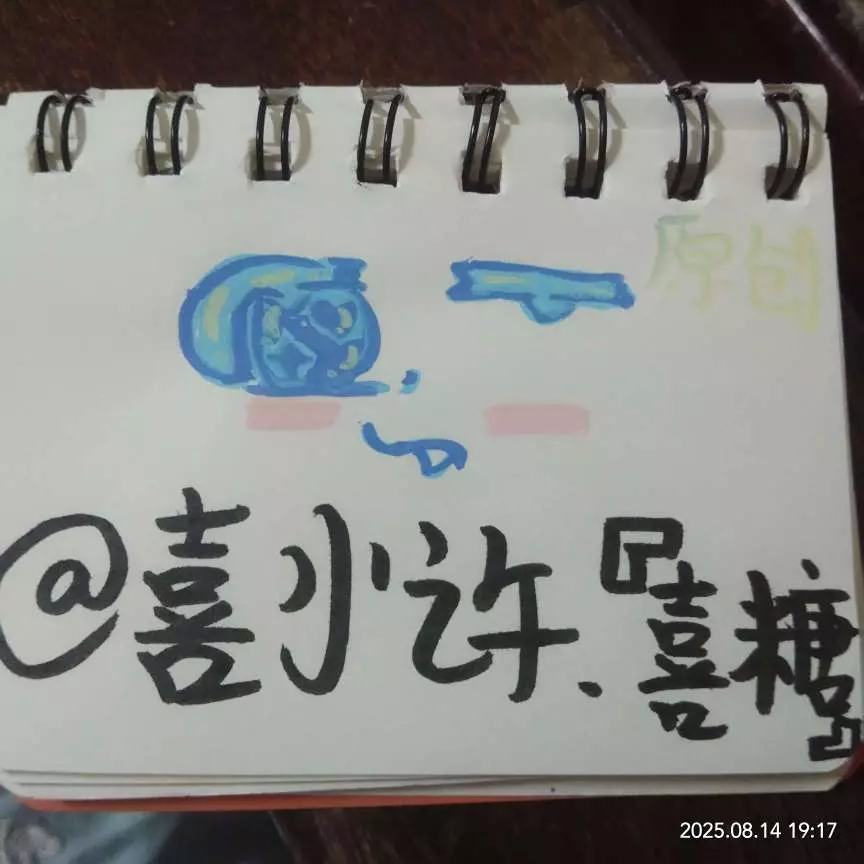 原创
@喜小许.『喜糖』
2025.08.14 19:17